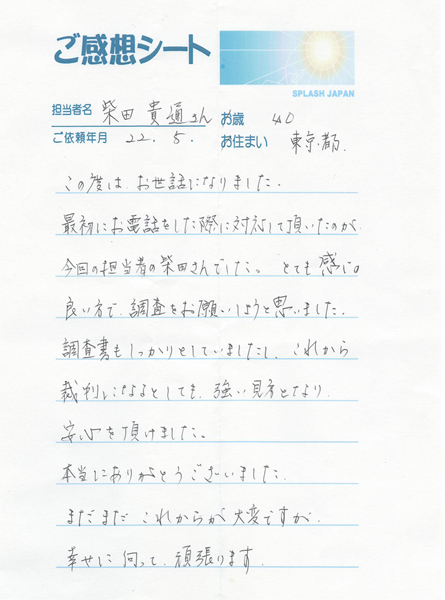 ご感想シート
SPLASH JAPAN
担当者名 柴田 貴通さん お歳 40
ご依頼年月 22. 5. お住まい 東京都.
この度は、お世話になりました.
最初にお電話をした際に対応して頂いたのが
今回の担当者の柴田さんでした。とても感じの
良い方で、調査をお願いしようと思いました.
調査書もしっかりとしていましたし、これから
裁判になるとしても、強い見方となり
安心を頂けました。
本当にありがとうございました.
まだまだ これからが 大変ですが、
幸せに向って、頑張ります.